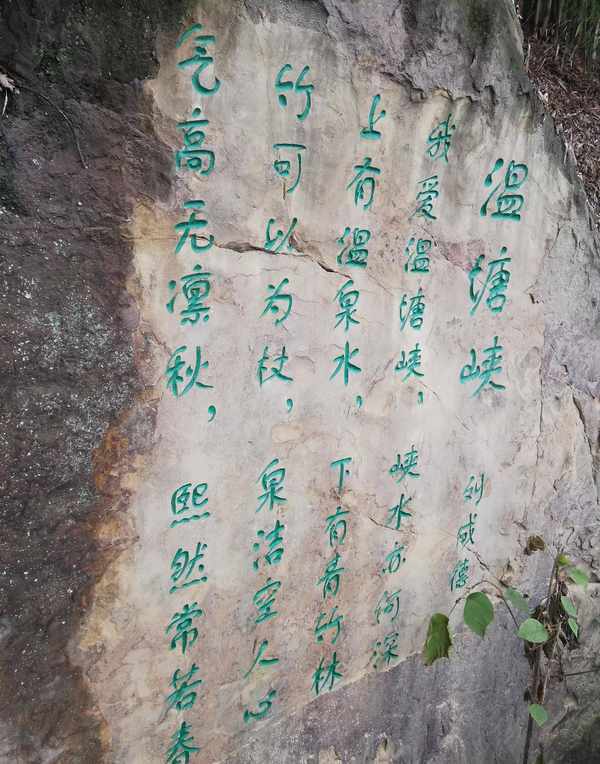 温塘峡
刘成德
我爱温塘峡，峡水亦何深
上有温泉水，下有青竹林
竹可以为杖，泉洁空人心
气高无凛秋，熙然常若春